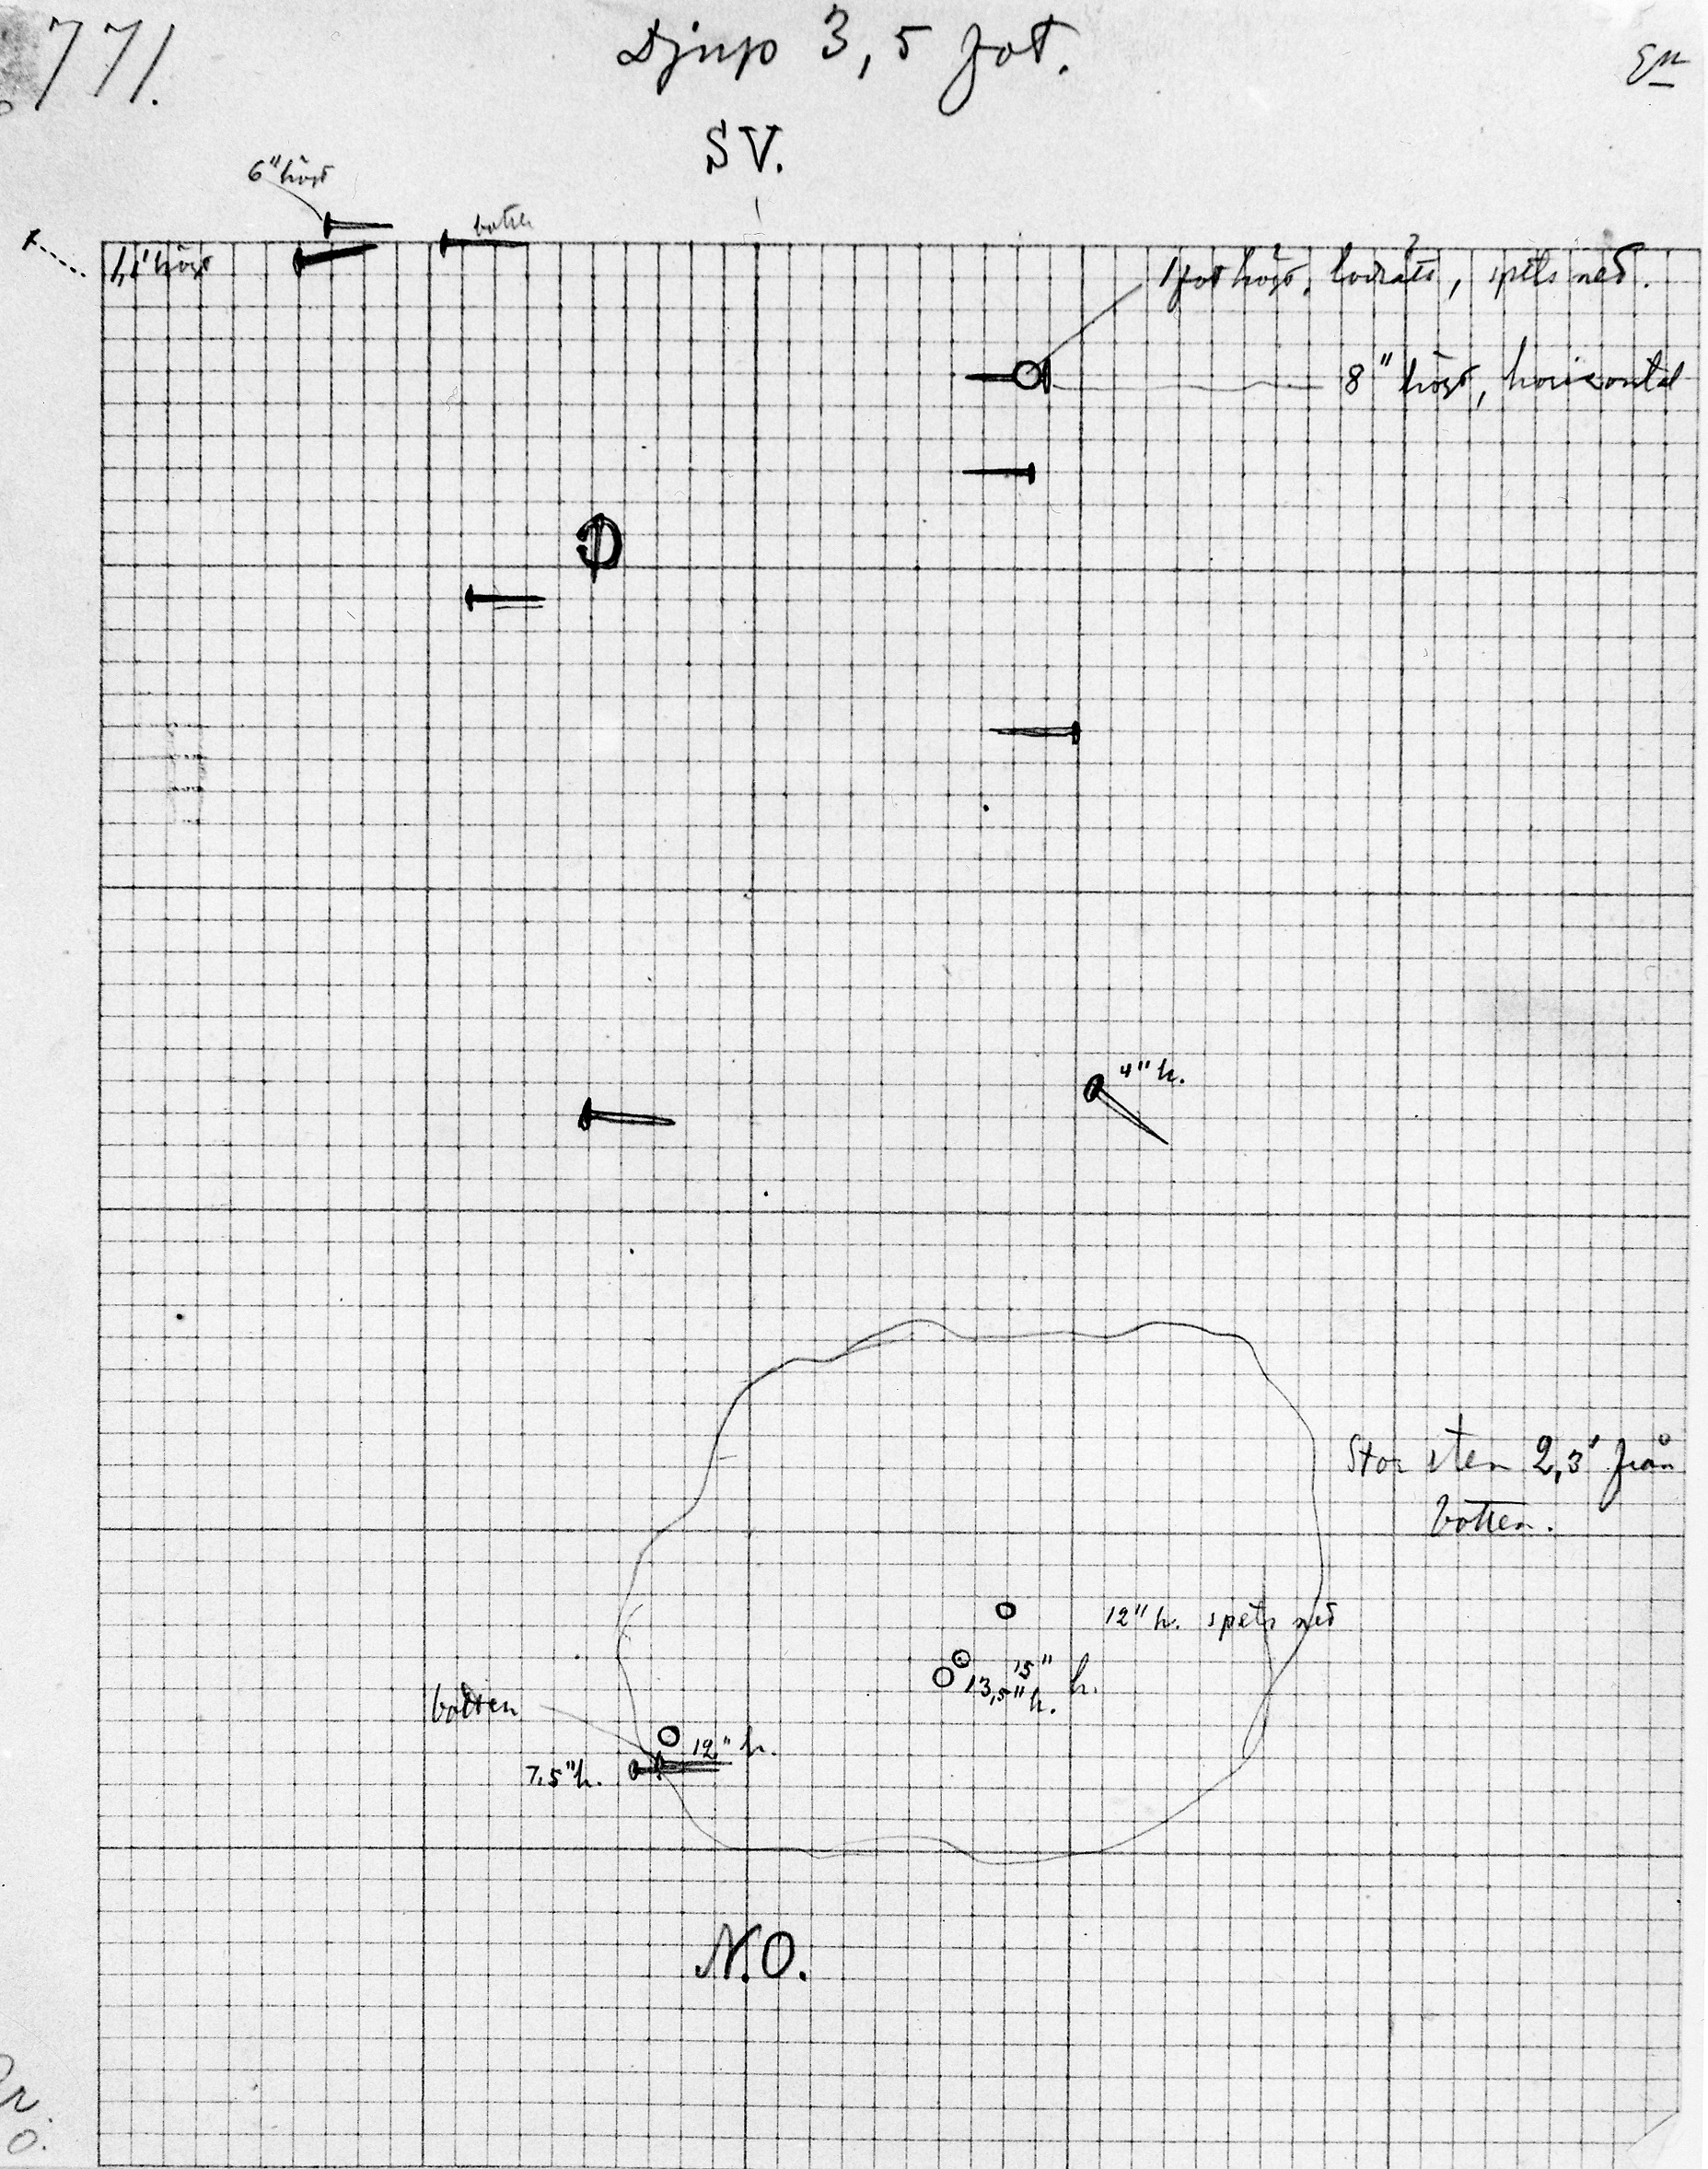 771.
Djup 3,5 fot.
SV.
6" högt
botten
1,1' högt
1 fot högt, lodrätt, spets ned.
8" högt, horizontal
4" h.
Stor sten 2,3' från
botten.
12" h. spets ned
15" h.
13,5" h.
botten
12" h.
7,5" h.
N.O.